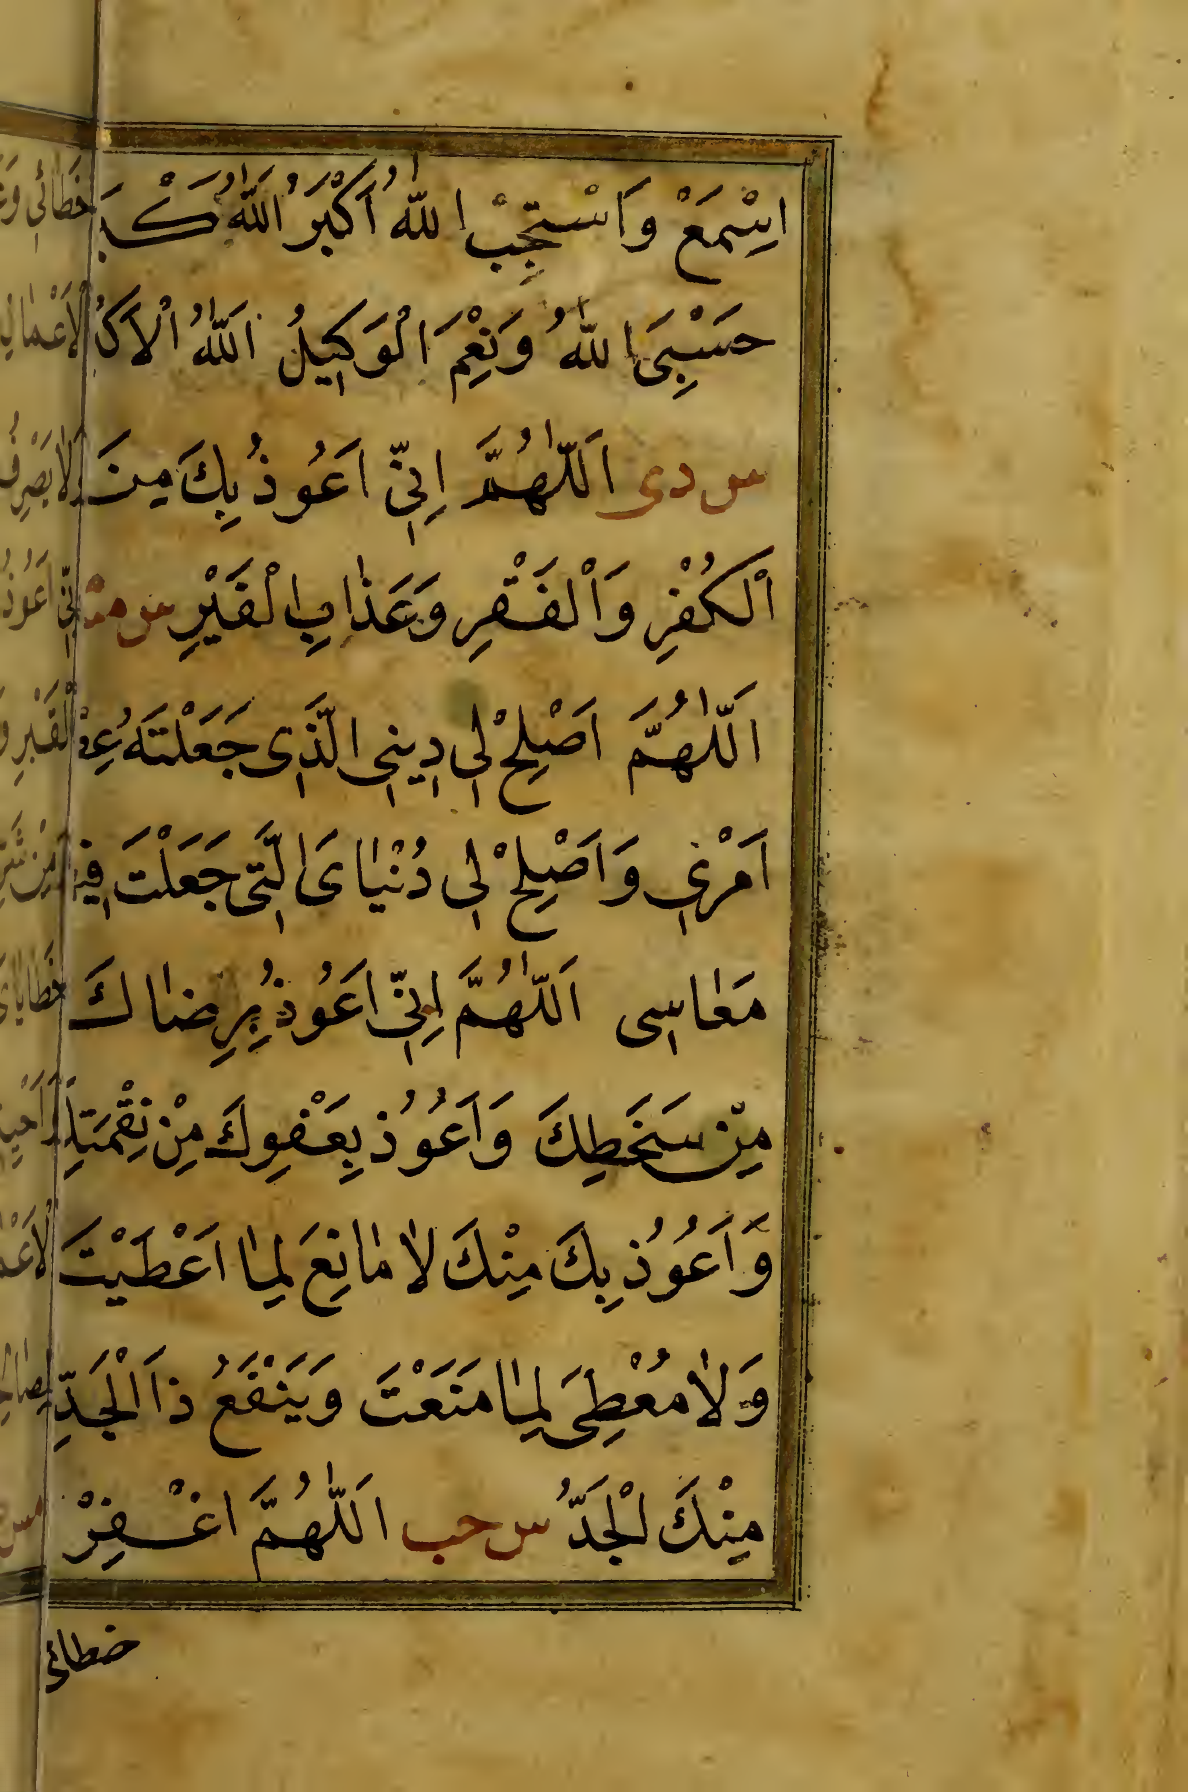 اِسْمَعْ وَاَسْتَجِبْ اللهُ اَكْبَرُ اَللهُ
حَسْبِىَ اللهُ وَنِعْمَ الْوَكِيلُ اَللهُ الْاَكْ
س دى اَللّٰهُمَّ اِنِّى اَعُوذُ بِكَ مِنَ
اْلكُفْرِ وَاْلفَقْرِ وَعَذٰابِ الْقَبْرِ س مس
اَللّٰهُمَّ اَصْلِحْ لِى دِينِى الَّذِى جَعَلْتَهُ
اَمْرِى وَاَصْلِحْ لِى دُنْيٰاىَ الَّتِى جَعَلْتَ فِيهٰا
مَعٰاسِى اَللّٰهُمَّ اِنِّى اَعُوذُ بِرِضٰاكَ
مِنْ سَخَطِكَ وَاَعُوُذ بِعَفْوِكَ مِنْ نِقْمَتِكَ
وَاَعُوُذ بِكَ مِنْكَ لٰا مٰانِعَ لِمٰا اَعْطَيْتَ
وَلٰا مُعْطِىَ لِمٰا مَنَعْتَ وَيَنْفَعُ ذَا الْجَدِّ
مِنْكَ لْجَدُّ س حب اَللّٰهُمَّ اغْفِرْ
خطائى